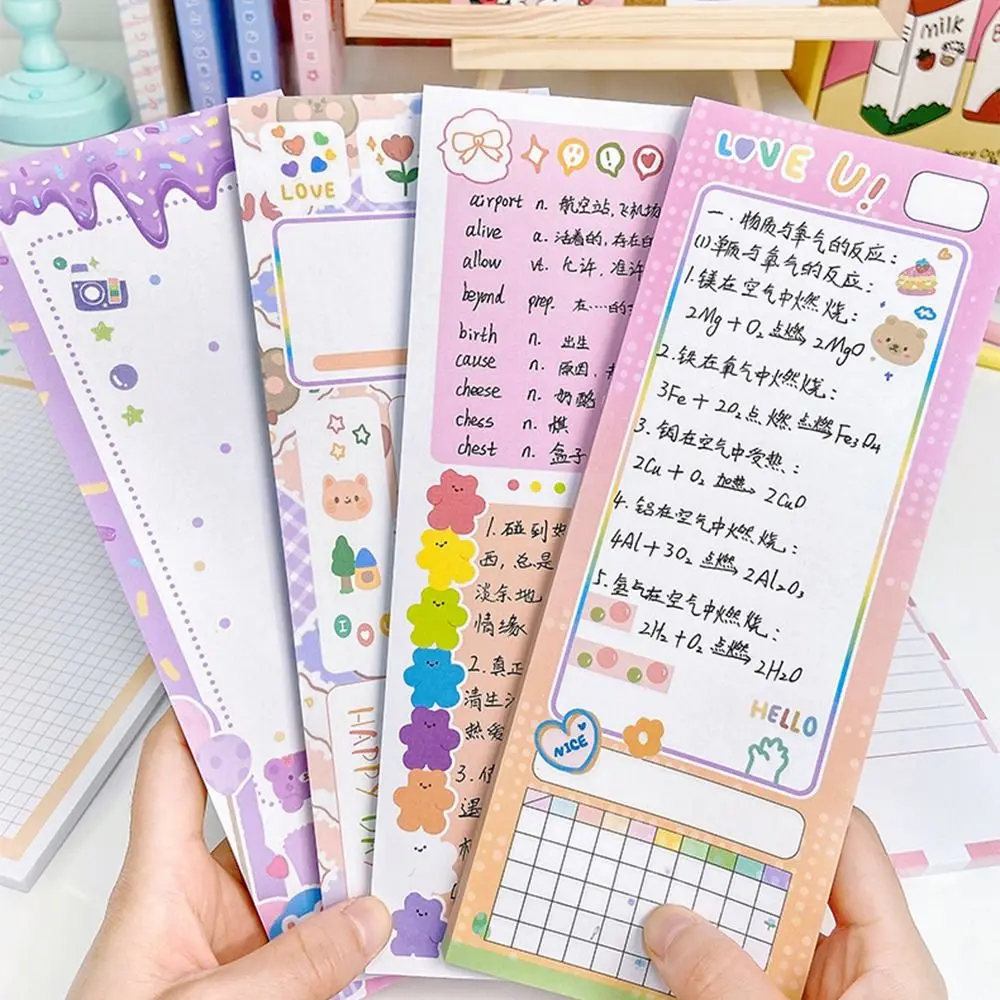 milk
LOVE
I
HAPPY
airport n. 航空站,飞机场
alive a. 活着的,存在
allow vt. 允许,准许
beyond prep. 在……的
birth n. 出生
cause n. 原因,
cheese n. 奶酪
chess n. 棋
chest n. 盒子
1.碰到
西,总是
淡余地
情缘
2.真正
清生
热爱
3.
LOVE U!
一.物质与氧气的反应:
(1)单质与氧气的反应:
1.镁在空气中燃烧:
2Mg+O₂ 点燃→ 2MgO
2.铁在氧气中燃烧:
3Fe+2O₂点燃 点燃→ Fe₃O₄
3.铜在空气中受热:
2Cu+O₂ 加热→ 2CuO
4.铝在空气中燃烧:
4Al+3O₂ 点燃→ 2Al₂O₃
5.氢气在空气中燃烧:
2H₂+O₂ 点燃→ 2H₂O
HELLO
NICE